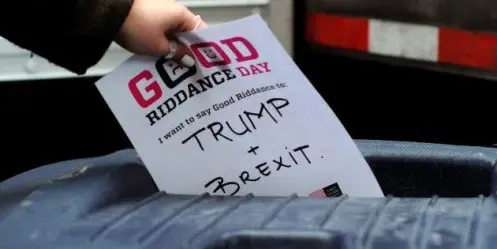 GOOD
RIDDANCE DAY
I want to say Good Riddance to:
TRUMP
+
BREXIT.